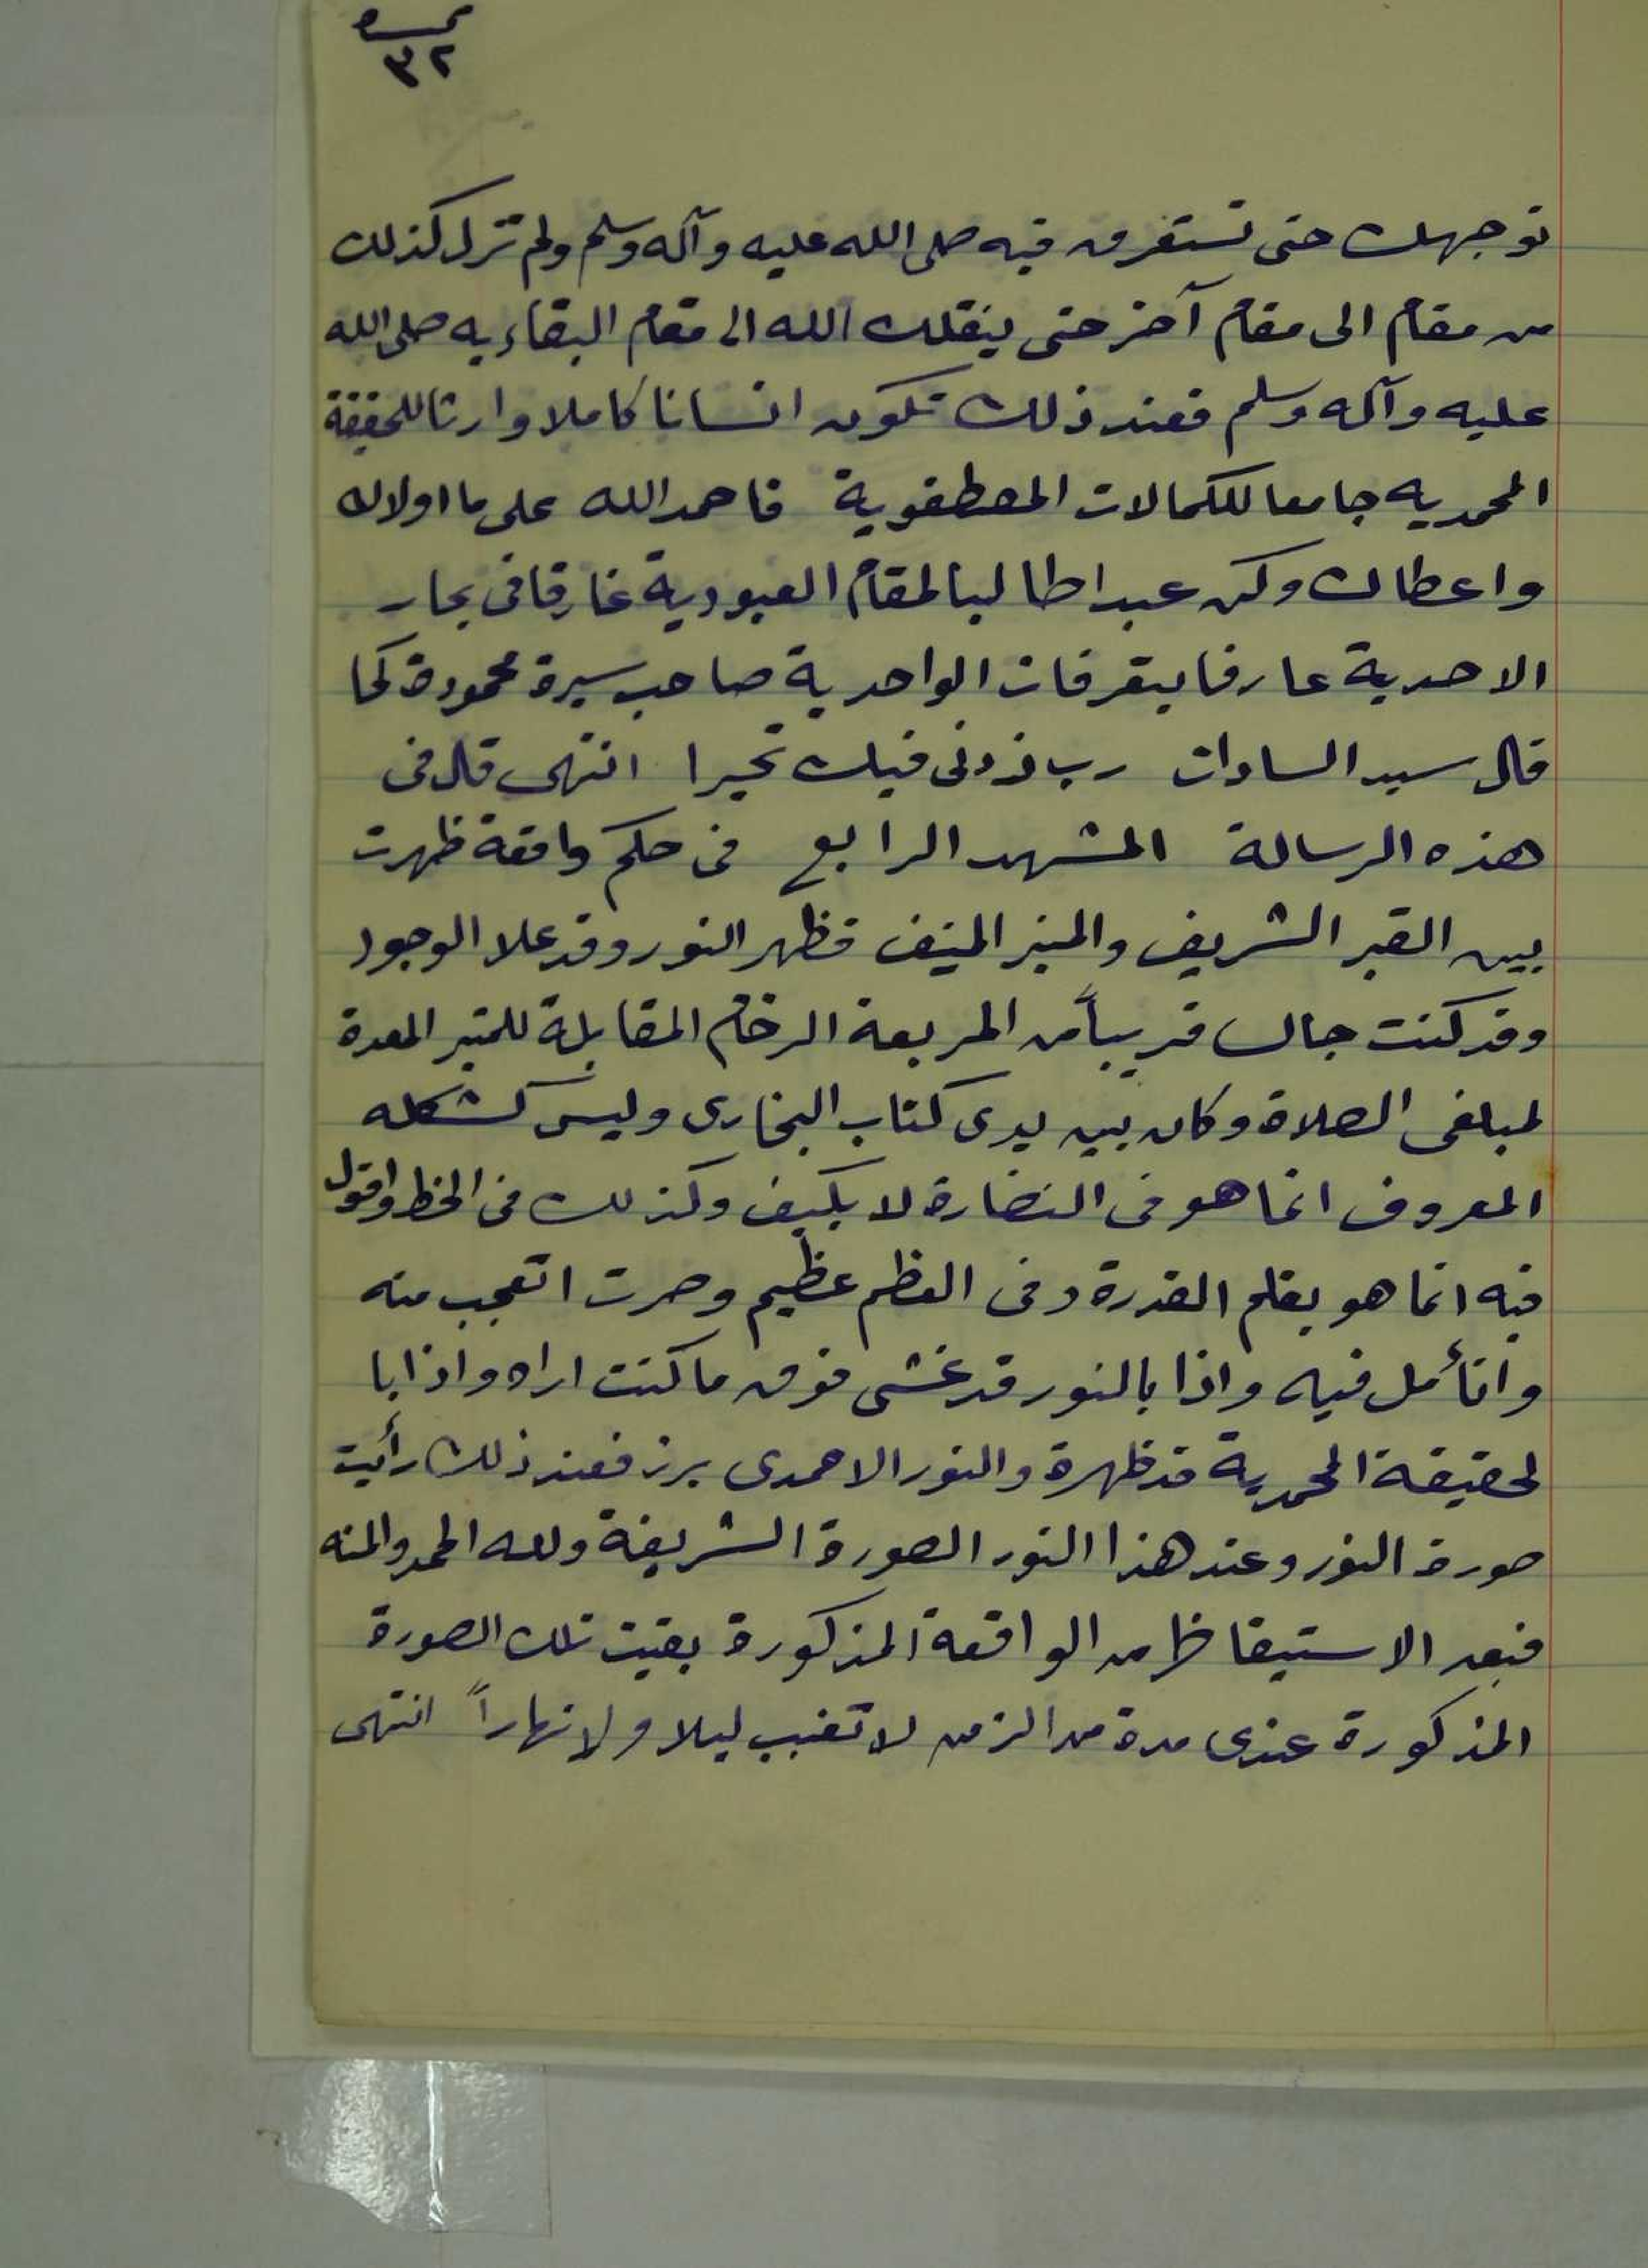 ٣٢
توجهك حتى تستغرق فيه صلى الله عليه وآله وسلم ولم تزل كذلك
من مقام الى مقام آخر حتى ينقلك الله الى مقام البقاء به صلى الله
عليه وآله وسلم فعند ذلك تكون انسانا كاملا وارثا للحقيقة
المحمديه جامعا للكمالات المصطفوية فاحمد الله على ما اولاك
واعطاك وكن عبدا طالبا لمقام العبودية غارقا فى بحار
الاحدية عارفا بتصرفات الواحدية صاحب سيرة محمودة كما
قال سيد السادات رب زدنى فيك تحيرا انتهى قال فى
هذه الرسالة المشهد الرابع فى حكم واقعة ظهرت
بين القبر الشريف والمنبر المنيف فظهر النور وقد علا الوجود
وقد كنت جالس قريباً من المربعة الرخام المقابلة للمنبر المعدة
لمبلغى الصلاة وكان بين يدى كتاب البخارى وليس كشكله
المعروف انما هو فى النضارة لا يكيف وكذلك فى الخط واقول
فيه انما هو بقلم القدرة وفى العظم عظيم وصرت اتعجب منه
واتأمل فيه واذا بالنور قد غشى فوق ما كنت اراه واذا با
لحقيقة المحمدية قد ظهرة والنور الاحمدى برز فعند ذلك رأيت
صورة النور وعند هذا النور الصورة الشريفة ولله الحمد والمنه
فبعد الاستيقاظ من الواقعة المذكورة بقيت تلك الصورة
المذكورة عندى مدة من الزمن لا تغيب ليلا ولا نهاراً انتهى